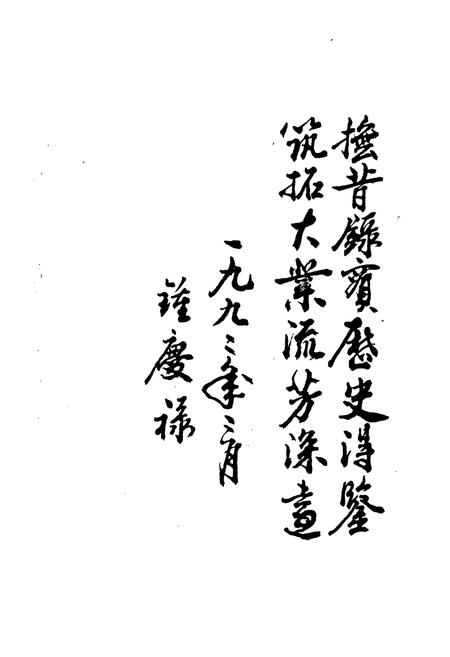 撫昔錄實歷史得鑒
筑拓大業流芳深遠
一九九二年二月
鍾慶禄